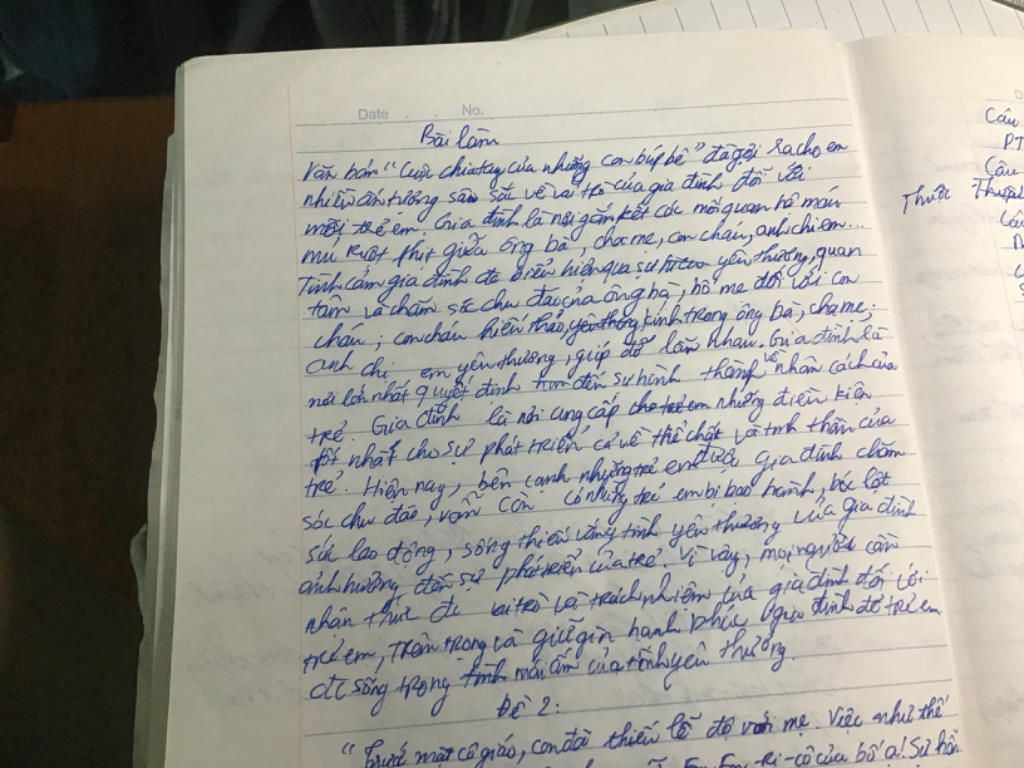 Date . . No.
Bài làm
Văn bản "Cuộc chia tay của những con búp bê" đã gợi ra cho em
nhiều ấn tượng sâu sắc về vai trò của gia đình đối với
mỗi trẻ em. Gia đình là nơi gắn kết các mối quan hệ máu
mủ ruột thịt giữa ông bà, cha mẹ, con cháu, anh chị em...
Tình cảm gia đình đc biểu hiện qua sự yêu thương, quan
tâm và chăm sóc chu đáo của ông bà, bố mẹ đối với con
cháu; con cháu hiếu thảo, yêu thương, kính trọng ông bà, cha mẹ;
anh chị em yêu thương, giúp đỡ lẫn nhau. Gia đình là
nơi lớn nhất quyết định đến sự hình thành về nhân cách của
trẻ. Gia đình là nơi cung cấp cho trẻ em những điều kiện
tốt nhất cho sự phát triển cả về thể chất và tinh thần của
trẻ. Hiện nay, bên cạnh những trẻ em được gia đình chăm
sóc chu đáo, vẫn còn có những trẻ em bị bạo hành, bóc lột
sức lao động, sống thiếu vắng tình yêu thương của gia đình
ảnh hưởng đến sự phát triển của trẻ. Vì vậy, mọi người cần
nhận thức đc vai trò và trách nhiệm của gia đình đối với
trẻ em, trân trọng và giữ gìn hạnh phúc gia đình để trẻ em
đc sống trong tình mái ấm của tình yêu thương.
Đề 2:
"Trước mặt cô giáo, con đã thiếu lễ độ với mẹ. Việc như thế
En-ri-cô của bố ạ! Sự hỗn
Câu
PT
Câu
Thuộc